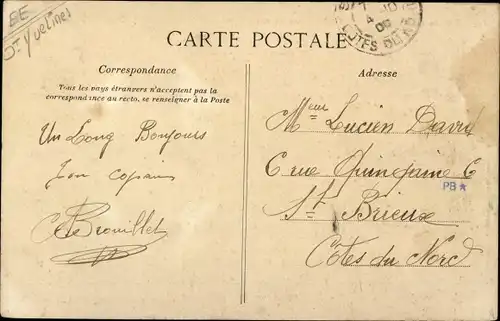 BE
Dt Yvelines
CARTE POSTALE
COTES DU NORD
Correspondance
Tous les pays étrangers n'acceptent pas la
correspondance au recto, se renseigner à la Poste
Un Long Bonjours
Ton copain
Brouillet
Adresse
Meur Lucien David
6 rue Quinquaine 6
PB★
St Brieux
Côtes du Nord